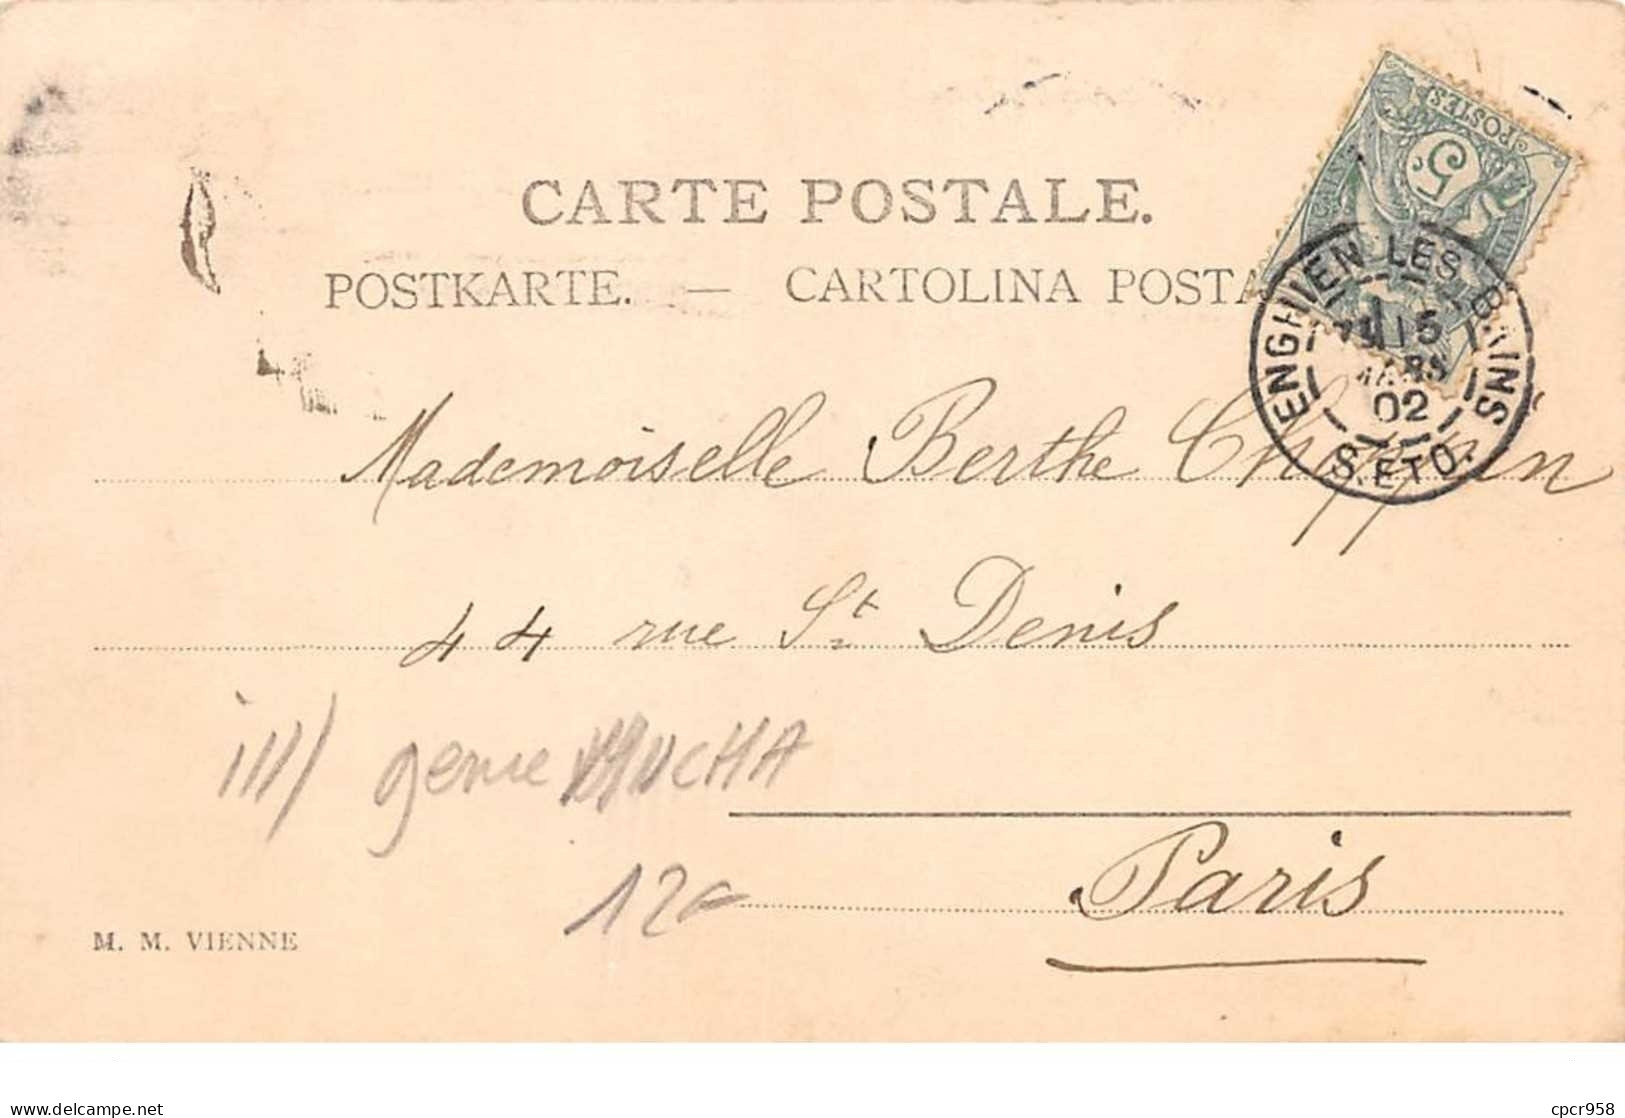 CARTE POSTALE.
POSTKARTE. — CARTOLINA POSTA
POSTES
5
ENGHIEN LES BAINS
15
MARS
02
S. ET O.
Mademoiselle Berthe Chappin
44 rue St Denis
ill) genre MUCHA
120
Paris
M. M. VIENNE
delcampe.net
cpcr958